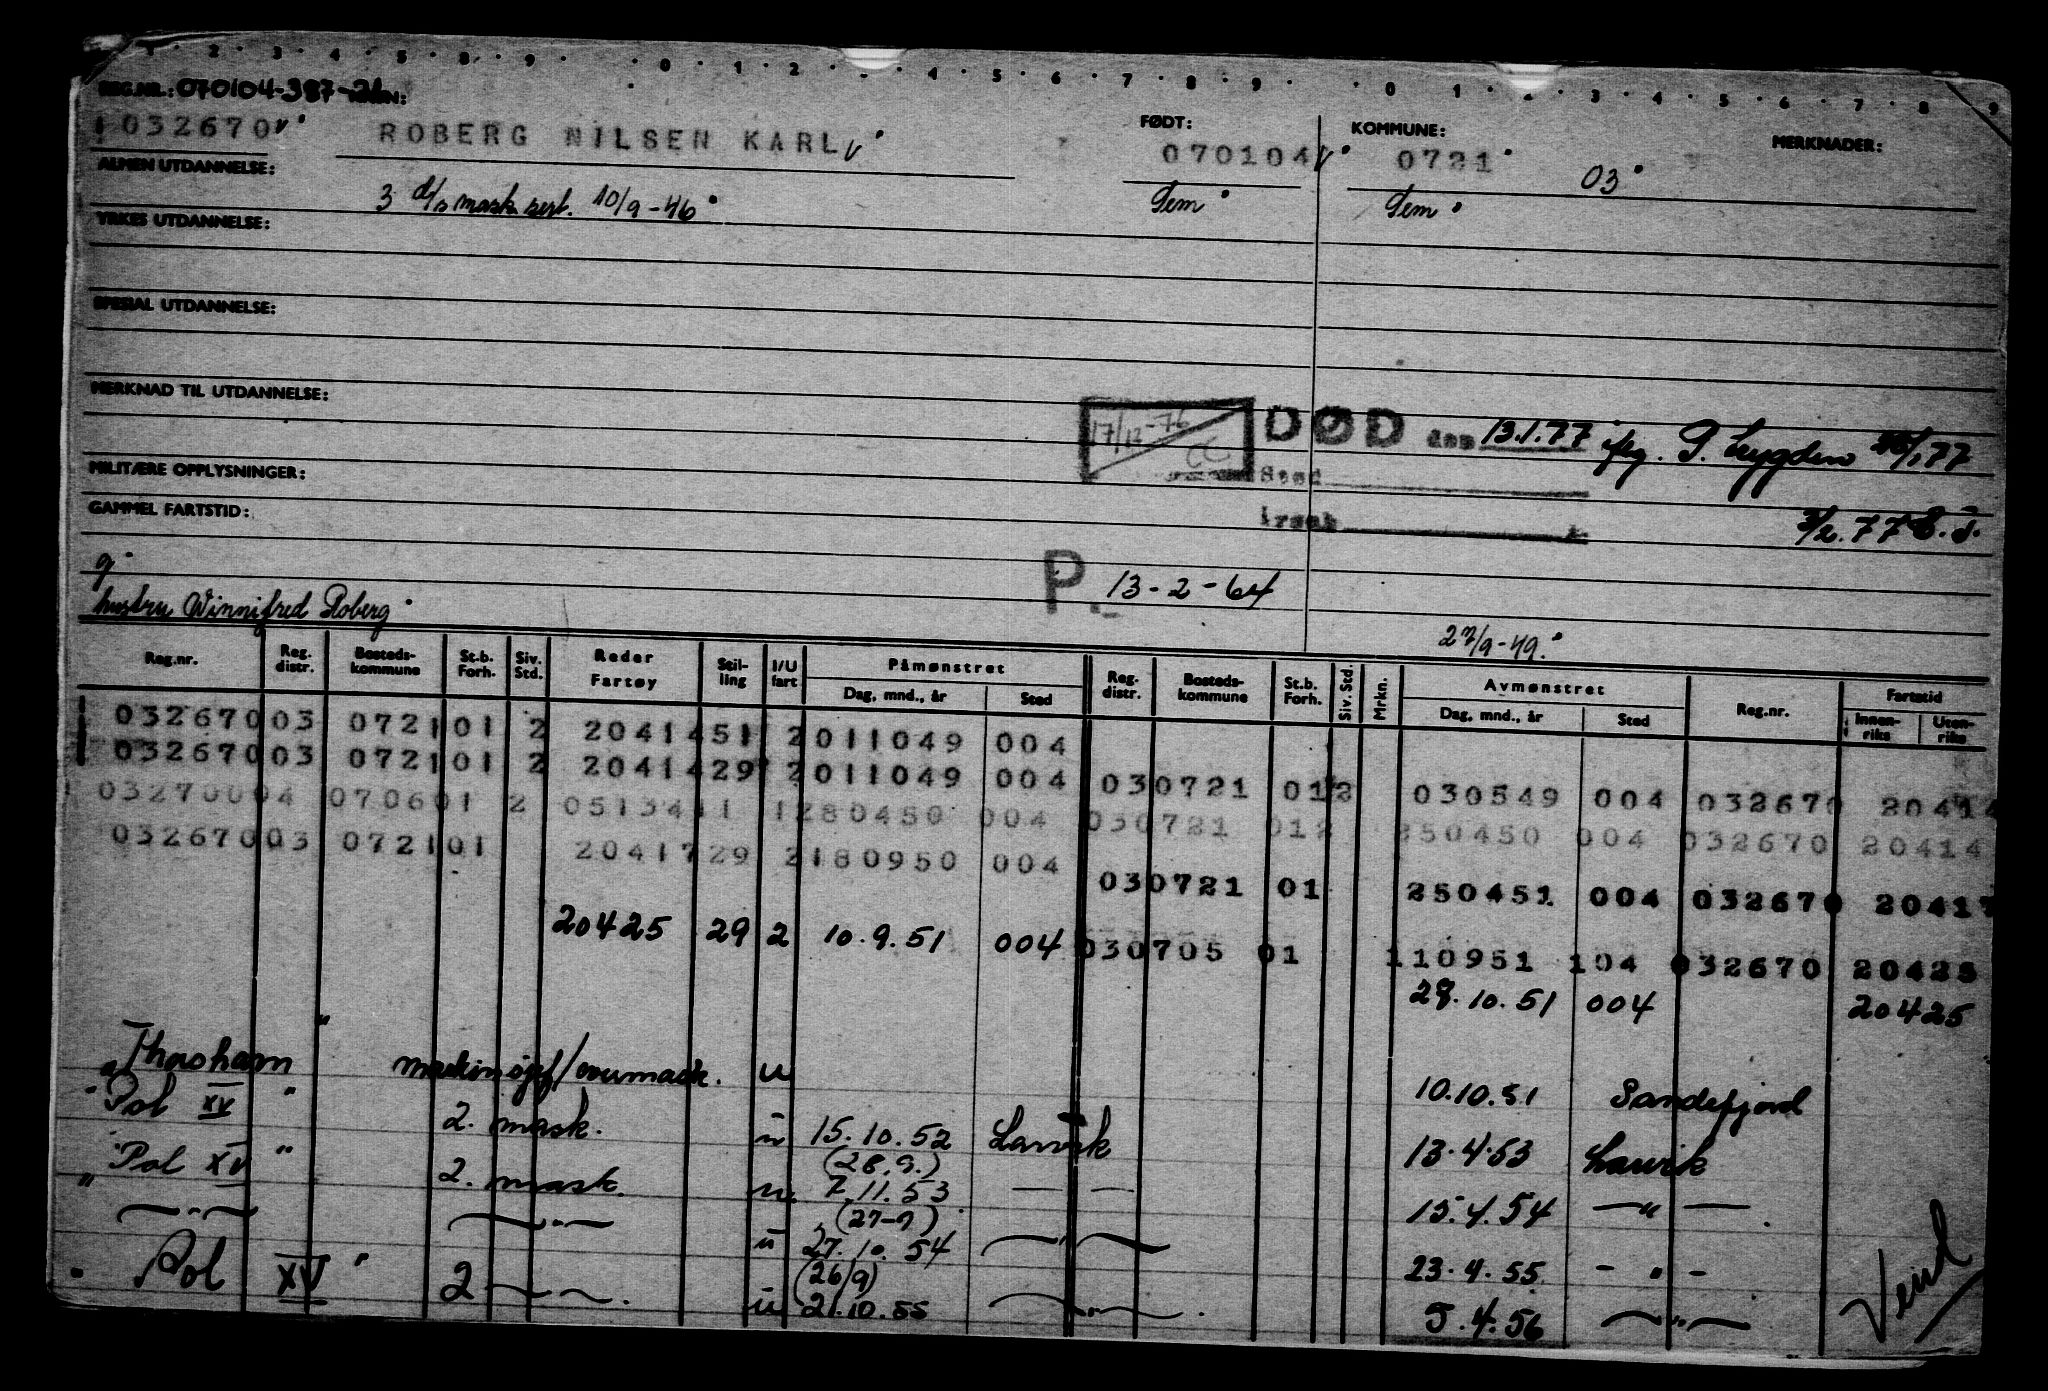 1 2 3 4 5 8 9 0 1 2 4 5 6 7 8 9 0 1 2 3 4 5 6 7 8 9
REG.NR.: 070104-387-21
1032670 ROBERG NILSEN KARL FØDT: 070104 KOMMUNE: 0721 03 MERKNADER:
ALMEN UTDANNELSE:
3 d/s mask. sert. 10/9-46 Sem Sem
YRKES UTDANNELSE:
SPESIAL UTDANNELSE:
MERKNAD TIL UTDANNELSE:
17/12-76 DØD den 13.1.77 iføg. P. Lygden /1 77
MILITÆRE OPPLYSNINGER:
Sted
GAMMEL FARTSTID:
årsak 3/2.77 E.J.
g
P. 13-2-64
hustru Winnifred Roberg
27/9-49.
Reg.nr. Reg. distr. Bosteds-kommune St.b. Forh. Siv. Std. Reder Fartøy Stil-ling I/U fart Påmønstret Dag, mnd., år Sted Reg. distr. Bosteds-kommune St.b. Forh. Siv. Std. Mrkn. Avmønstret Dag, mnd., år Sted Reg.nr. Fartstid Innen-riks Uten-riks
032670 03 0721 01 2 20414 51 2 011049 004
032670 03 0721 01 2 20414 29 2 011049 004 03 0721 01 2 030549 004 032670 20414
032700 04 0706 01 2 05134 11 1 280450 004 03 0721 01 2 250450 004 032670 20414
032670 03 0721 01 20417 29 2 180950 004
03 0721 01 250451 004 032670 20417
20425 29 2 10.9.51 004 03 0705 01 110951 104 032670 20425
29.10.51 004 20425
"Thorshavn" maskinsjef/overmask. u 10.10.51 Sandefjord
"Pol XV" 2. mask. u 15.10.52 Larvik 13.4.53 Larvik
(28.9.)
"Pol XV" 2. mask. u. 7.11.53 — — 15.4.54 — " —
(27-9)
" — " — — " — u 27.10.54 — " — 23.4.55 - " -
(26/9)
"Pol XV" 2 — " — u 21.10.55 — " — 5.4.56 — " —
Vend